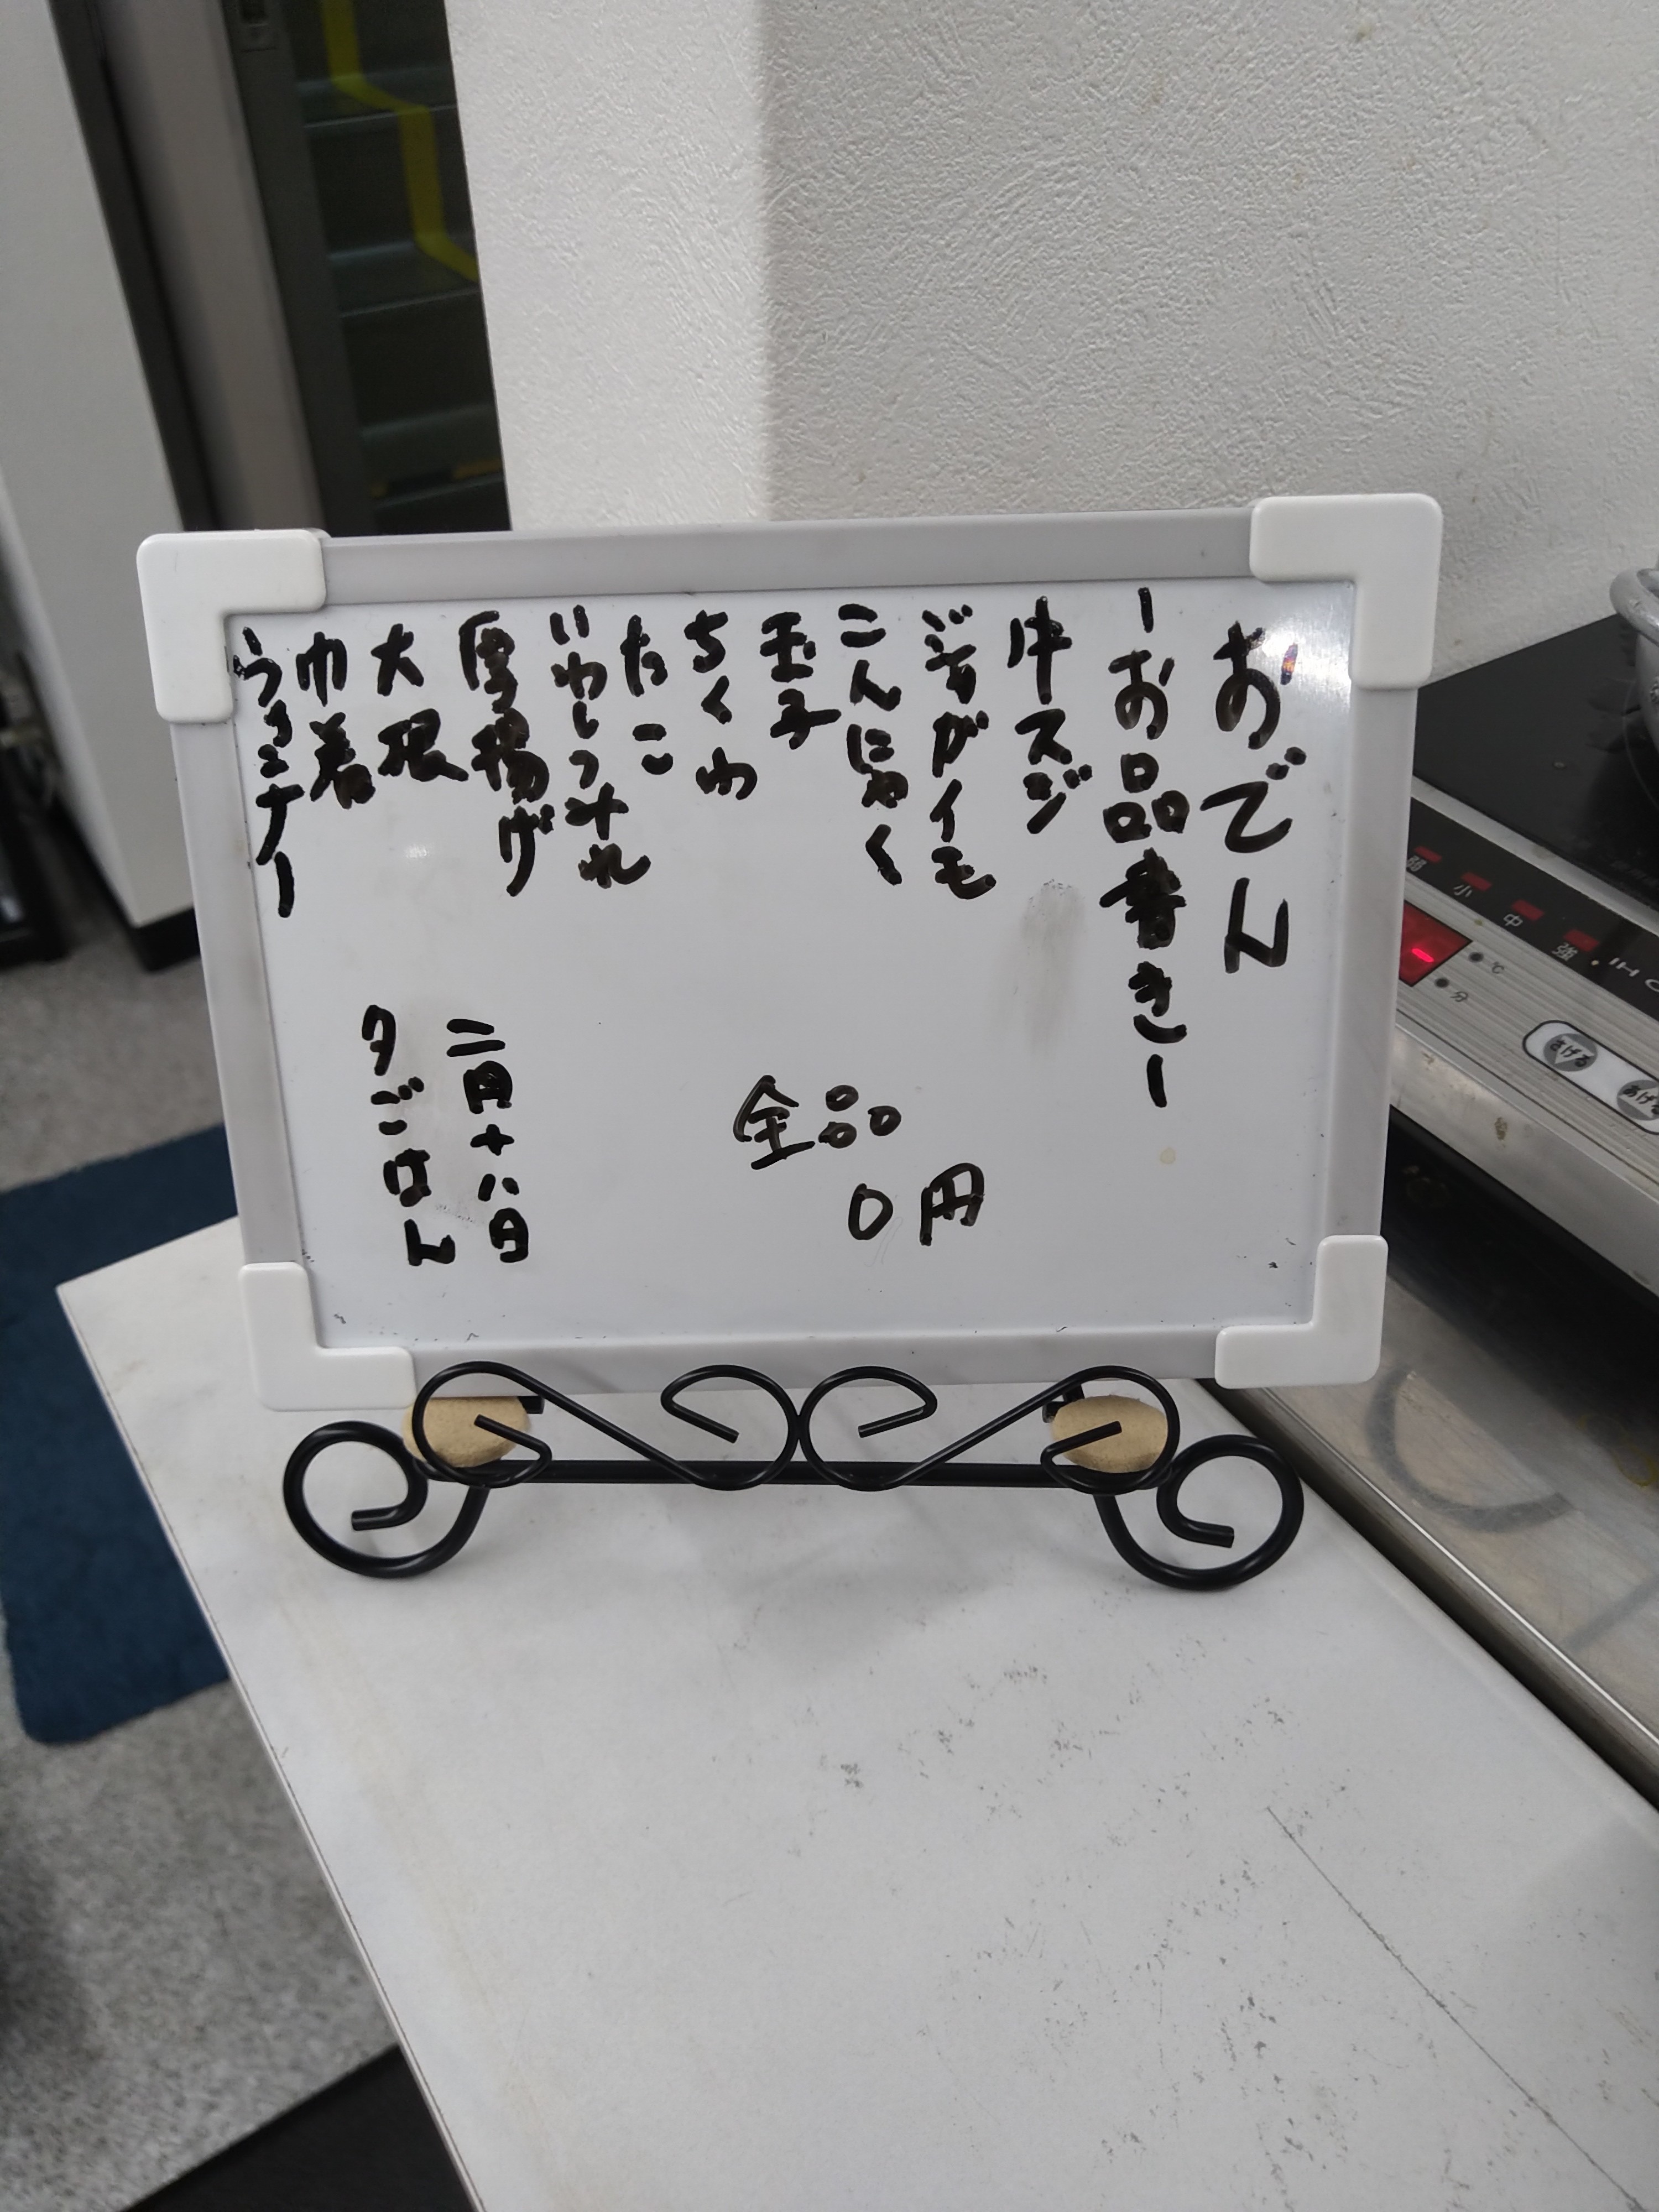 おでん
ーお品書きー
牛スジ
ジャガイモ
こんにゃく
玉子
ちくわ
たこ
いわしつみれ
厚揚げ
大根
巾着
ウィンナー
全品
0円
二月十八日
夕ごはん
弱
小
中
強
℃
分
さげる
あげる